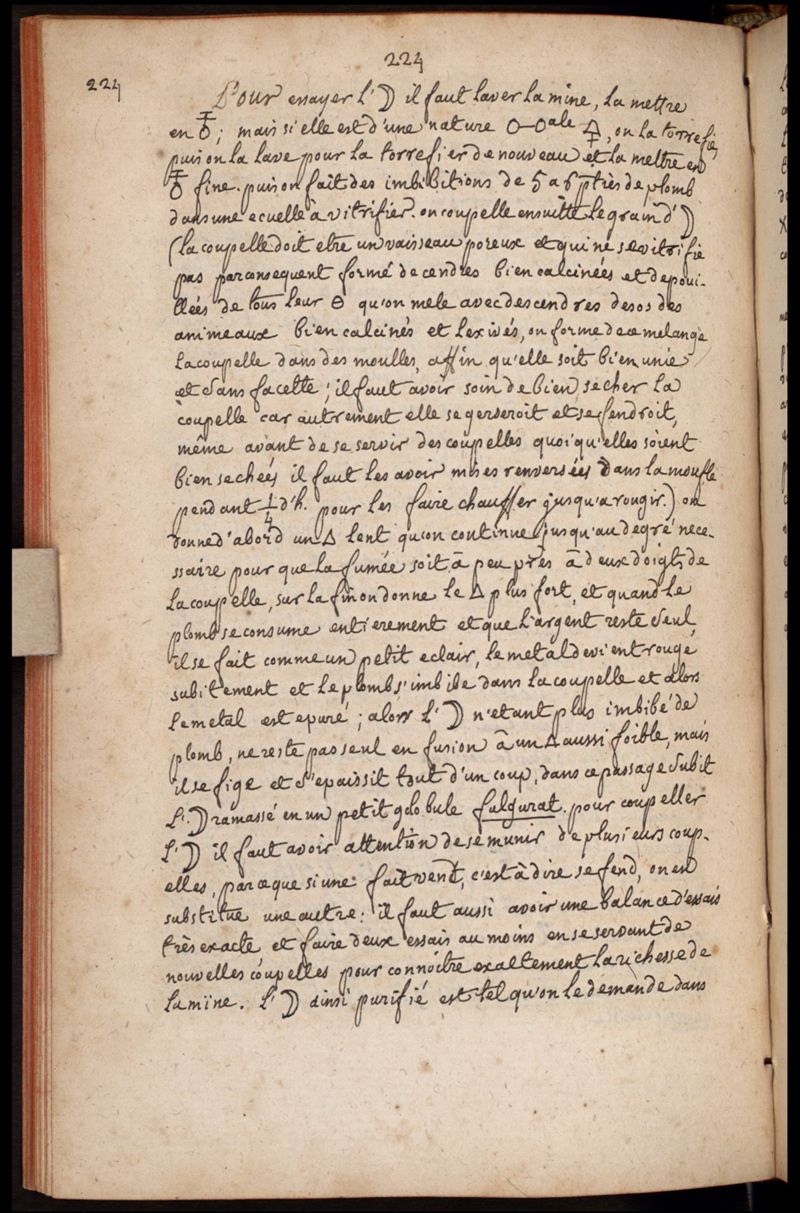 224
224
Pour essayer l'☽ il faut laver la mine, la mettre
en ♁; mais si elle est d'une nature o–oale 🜍, on la torrefie
puis on la lave pour la torrefier de nouveau et la mettre en
♁ fine. puis on fait des imbibitions de 5 a 6 pties de plomb
dans une ecuelle à vitrifier. on coupelle ensuitte le grain d'☽
(la coupelle doit etre un vaisseau poreux et qui ne se vitrifie
pas par consequent formé de cendres bien calcinées et depoui-
llées de tous leur 🜔 qu'on mele avec des cendres des os des
animeaux bien calcinés et lexivés, on forme de ce melange
la coupelle dans des moulles, affin qu'elle soit bien unie
et sans facette; il faut avoir soin de bien secher la
coupelle car autrement elle se gerseroit et se fendroit,
même avant de se servir des coupelles quoiqu'elles soient
bien sechées il faut les avoir mises renversées dans la moufle
pendant 1/4 d'h. pour les faire chauffer jusqu'a rougir.) on
donne d'abord un △ lent qu'on continue jusqu'au degré nece-
ssaire pour que la fumée soit à peu près à deux doigts de
la coupelle, sur la fin on donne le △ plus fort, et quand le
plomb se consume entierement et que l'argent reste seul,
il se fait comme un petit eclair, le metal devient rouge
subitement et le plomb s'imbibe dans la coupelle et alors
le metal est epuré; alors l'☽ n'etant plus imbibé de
plomb, ne reste pas seul en fusion à un △ aussi foible, mais
il se fige et s'epaissit tout d'un coup, dans ce passage subit
l'☽ ramassé en un petit globule fulgurat. pour coupeller
l'☽ il faut avoir attention de se munir de plusieurs coup-
elles, parce que si une fait vent, c'est à dire se fend, on en
substitue une autre: il faut aussi avoir une balance d'essais
très exacte et faire deux essais au moins en se servant de
nouvelles coupelles pour connoitre exactement la richesse de
la mine. l'☽ ainsi purifié est tel qu'on le demande dans